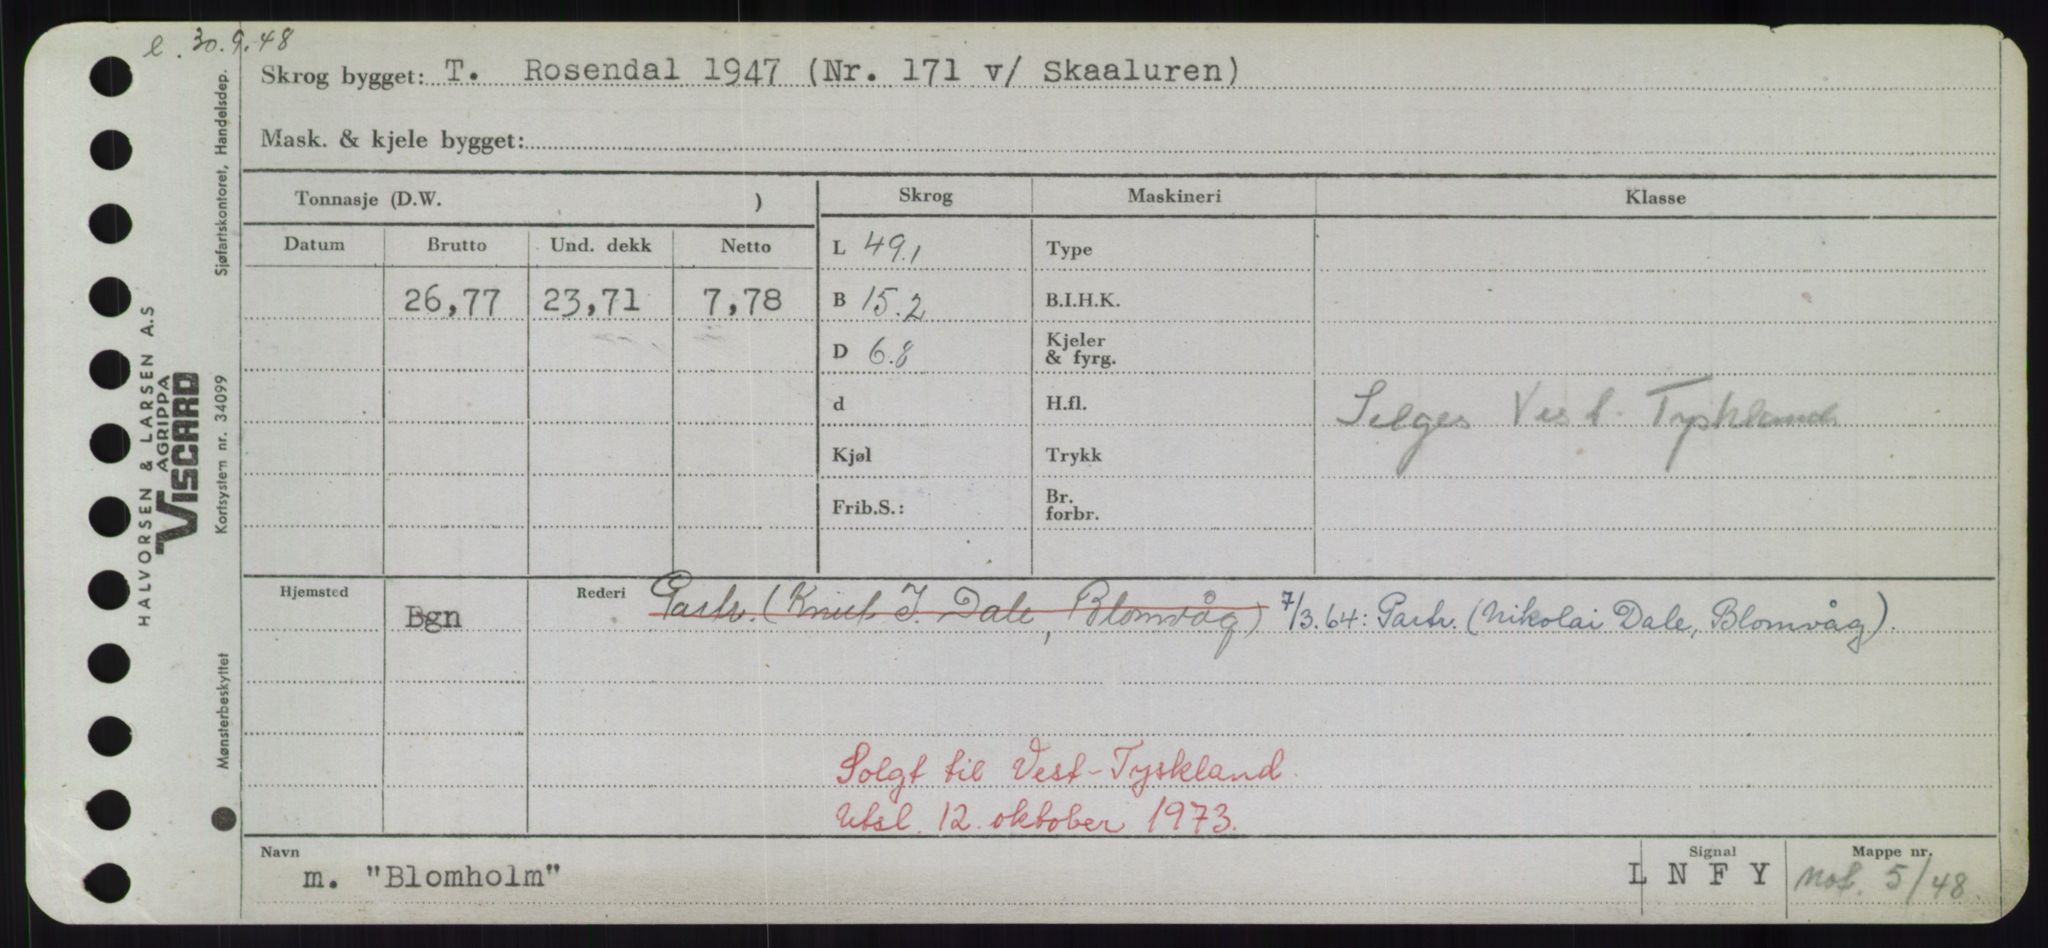 e. 30.9.48
Skrog bygget: T. Rosendal 1947 (Nr. 171 v/ Skaaluren)
Mask. & kjele bygget:
Tonnasje (D.W. )
Skrog Maskineri Klasse
Datum Brutto Und. dekk Netto
L 49.1 Type
26,77 23,71 7,78 B 15.2 B.I.H.K.
D 6.8 Kjeler & fyrg.
d H.fl. Selges Vest-Tyskland
Kjøl Trykk
Frib.S.: Br. forbr.
Hjemsted Bgn Rederi Partr. (Knut J. Dale, Blomvåg) 7/3.64: Partr. (Nikolai Dale, Blomvåg).
Solgt til Vest-Tyskland.
Utsl. 12. oktober 1973.
Navn Signal Mappe nr.
m. "Blomholm" L N F Y Nof. 5/48.
HALVORSEN & LARSEN A.S
AGRIPPA
VISCARD
Mønsterbeskyttet Kortsystem nr. 34099 Sjøfartskontoret, Handelsdep.